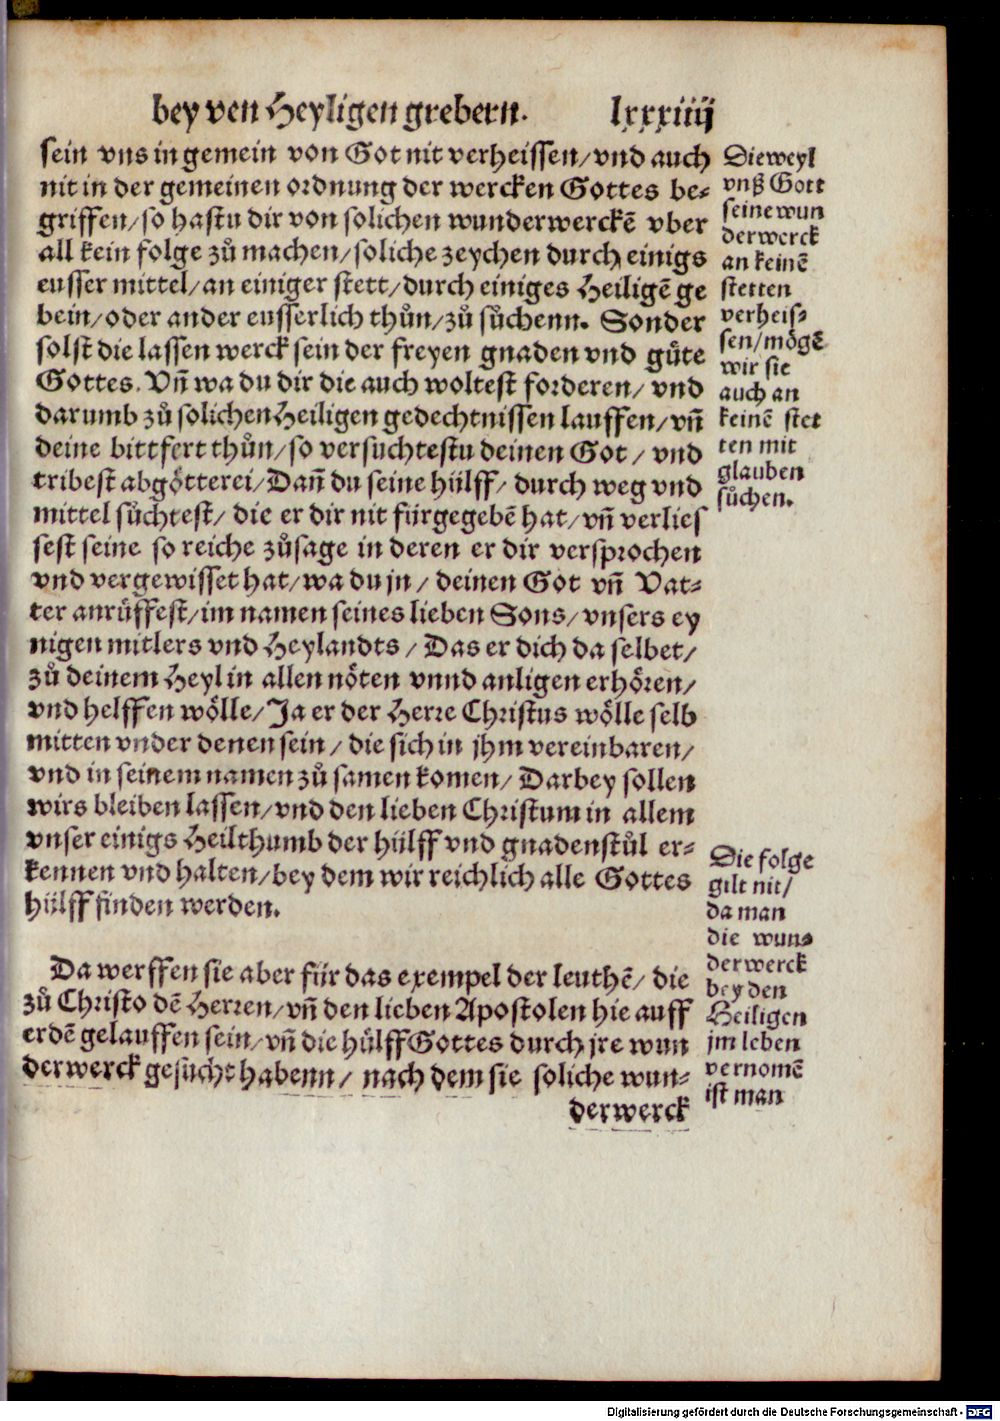 bey ven Heyligen grebern. lxxxiiij
sein vns in gemein von Got nit verheissen/vnd auch
nit in der gemeinen ordnung der wercken Gottes be-
griffen/so hastu dir von solichen wunderwerckē vber
all kein folge zů machen/soliche zeychen durch einigs
eusser mittel/an einiger stett/durch einiges Heiligē ge
bein/oder ander eusserlich thůn/zů sůchenn. Sonder
solst die lassen werck sein der freyen gnaden vnd gůte
Gottes. Vñ wa du dir die auch woltest forderen/ vnd
darumb zů solichen Heiligen gedechtnissen lauffen/vñ
deine bittfert thůn/so versuchtestu deinen Got/ vnd
tribest abgötterei/Dañ du seine hülff/ durch weg vnd
mittel sůchtest/ die er dir nit fürgegebē hat/vñ verlies
sest seine so reiche zůsage in deren er dir versprochen
vnd vergewisset hat/wa du jn/ deinen Got vñ Vat-
ter anrůffest/im namen seines lieben Sons/vnsers ey
nigen mitlers vnd Heylandts/ Das er dich da selbet/
zů deinem Heyl in allen nöten vnnd anligen erhören/
vnd helffen wölle/Ja er der Herre Christus wölle selb
mitten vnder denen sein/ die sich in jhm vereinbaren/
vnd in seinem namen zů samen komen/ Darbey sollen
wirs bleiben lassen/vnd den lieben Christum in allem
vnser einigs Heilthumb der hülff vnd gnadenstůl er-
kennen vnd halten/bey dem wir reichlich alle Gottes
hülff finden werden.
Da werffen sie aber für das exempel der leuthē/ die
zů Christo dē Herren/vñ den lieben Apostolen hie auff
erdē gelauffen sein/vñ die hülff Gottes durch jre wun
derwerck gesucht habenn/ nach dem sie soliche wun-
derwerck
Die weyl
vnß Gott
seine wun
derwerck
an keinē
stetten
verheis-
sen/mögē
wir sie
auch an
keinē stet
ten mit
glauben
sůchen.
Die folge
gilt nit/
da man
die wun-
derwerck
bey den
Heiligen
jm leben
vernomē
ist man
Digitalisierung gefördert durch die Deutsche Forschungsgemeinschaft - DFG